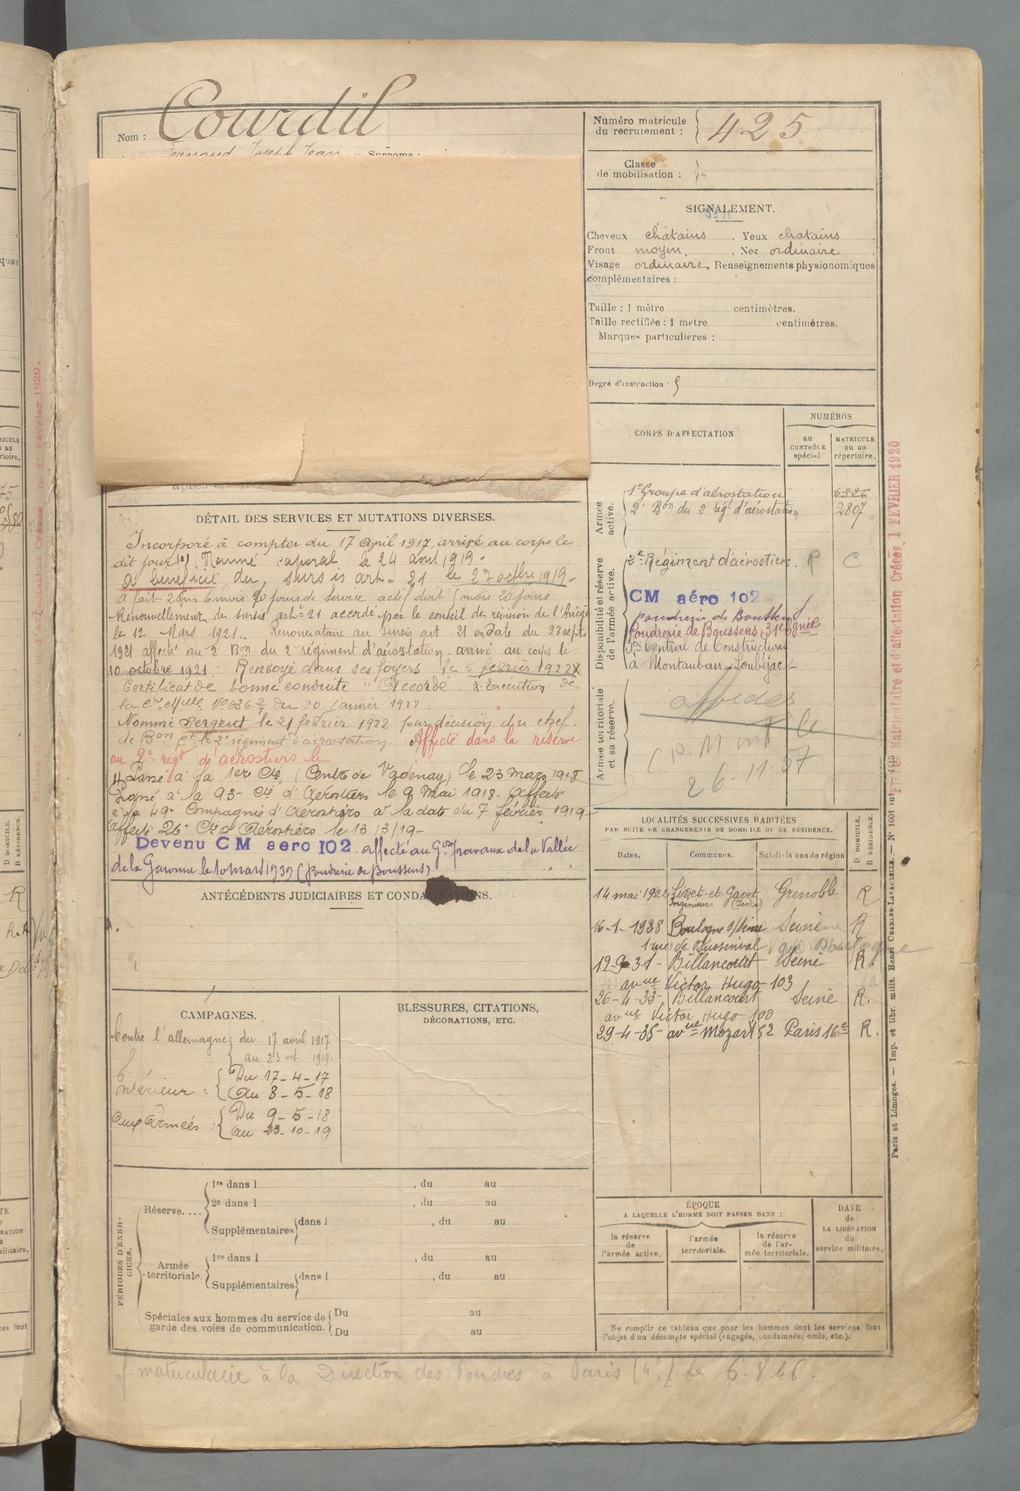 Nom : Courdil
Fernand Joseph Jean Surnoms :
Numéro matricule du recrutement : 425
Classe de mobilisation :
SIGNALEMENT.
Cheveux châtains . Yeux châtains
Front moyen . Nez ordinaire
Visage ordinaire. Renseignements physionomiques
complémentaires :
Taille : 1 mètre centimètres.
Taille rectifiée : 1 mètre centimètres.
Marques particulières :
Degré d'instruction : 5
CORPS D'AFFECTATION.
NUMÉROS
AU CONTRÔLE spécial.
MATRICULE OU AU répertoire.
Armée active.
1er Groupe d'aérostation
2e Bon du 2e régt d'aérostation 2807
Disponibilité et réserve de l'armée active.
2e Régiment d'aérostiers. R C
CM aéro 102
poudrerie de Boussens
Poudrerie de Boussens, 31e
Central de Construction
à Montauban
Armée territoriale et sa réserve.
26-11-57
DÉTAIL DES SERVICES ET MUTATIONS DIVERSES.
Incorporé à compter du 17 avril 1917 arrivé au corps le
dit jour (1). Nommé caporal le 24 août 1919.
A bénéficié du sursis art. 21 le 23 octbre 1919.
A fait 2 ans 6 mois jours de service actif doit 5 mois 20 jours
Renouvellement du sursis art. 21 accordé par le conseil de révision de l'Ariège
le 12 Mars 1921. Renonciataire au sursis art. 21 en date du 22 sept
1921 affecté au 2e Bon du 2e régiment d'aérostation. arrivé au corps le
10 octobre 1921. Renvoyé dans ses foyers le 5 février 1922
Certificat de bonne conduite "Accordé". Exécution de
la du 20 janvier 1922
Nommé Sergent le 21 février 1922 par décision du chef
de Bon Ct le 2e régiment d'aérostation. Affecté dans la réserve
au 2e régt d'aérostiers le
Passé à la 1ere Cie (Centre de Vadenay) le 23 mars 1918
Passé à la 93e Cie d'Aérostiers le 9 Mai 1918. Affecté
à la 49e Compagnie d'Aérostiers à la date du 7 février 1919
Affecté 26e Cie d'Aérostiers le 13/3/19
Devenu CM aero 102. affecté au travaux de la Vallée
de la Garonne le 10 mars 1939 (Poudrerie de Boussens)
ANTÉCÉDENTS JUDICIAIRES ET CONDAMNATIONS.
CAMPAGNES.
Contre l'allemagne du 17 avril 1917
au 23 oct 1919.
Intérieur : Du 17-4-17
Au 8-5-18
aux Armées : Du 9-5-18
au 23-10-19
BLESSURES, CITATIONS, DÉCORATIONS, ETC.
LOCALITÉS SUCCESSIVES HABITÉES
PAR SUITE DE CHANGEMENTS DE DOMICILE OU DE RÉSIDENCE.
Dates. Communes. Subdivisions de région
D DOMICILE. R RÉSIDENCE.
14 mai 192 Livet-et-Gavet Grenoble R
Ingénieur (Isère)
16-1-1928 Boulogne s/Seine Seine R
1 rue de Buzenval
Billancourt Seine R.
avue Victor Hugo 103
26-4-33 Billancourt Seine R.
avue Victor Hugo 100
29-4-35 avue Mozart 52 Paris 16e R.
PÉRIODES D'EXERCICES.
Réserve....
1re dans l , du au
2e dans l , du au
Supplémentaires dans l , du au
Armée territoriale.
1re dans l , du au
Supplémentaires dans l , du au
Spéciales aux hommes du service de garde des voies de communication. Du au
Du au
ÉPOQUE
A LAQUELLE L'HOMME DOIT PASSER DANS :
la réserve de l'armée active.
l'armée territoriale.
la réserve de l'armée territoriale.
DATE de LA LIBÉRATION du service militaire.
Ne remplir ce tableau que pour les hommes dont les services font
l'objet d'un décompte spécial (engagés, condamnés, omis, etc.).
matriculaire à la Direction des Poudres à Paris (4e) le 6.8.46.
Matriculaire et d'affectation Créées 1 FEVRIER 1920
Paris et Limoges. — Imp. et libr. milit. Henri CHARLES-LAVAUZELLE. — N° 1601